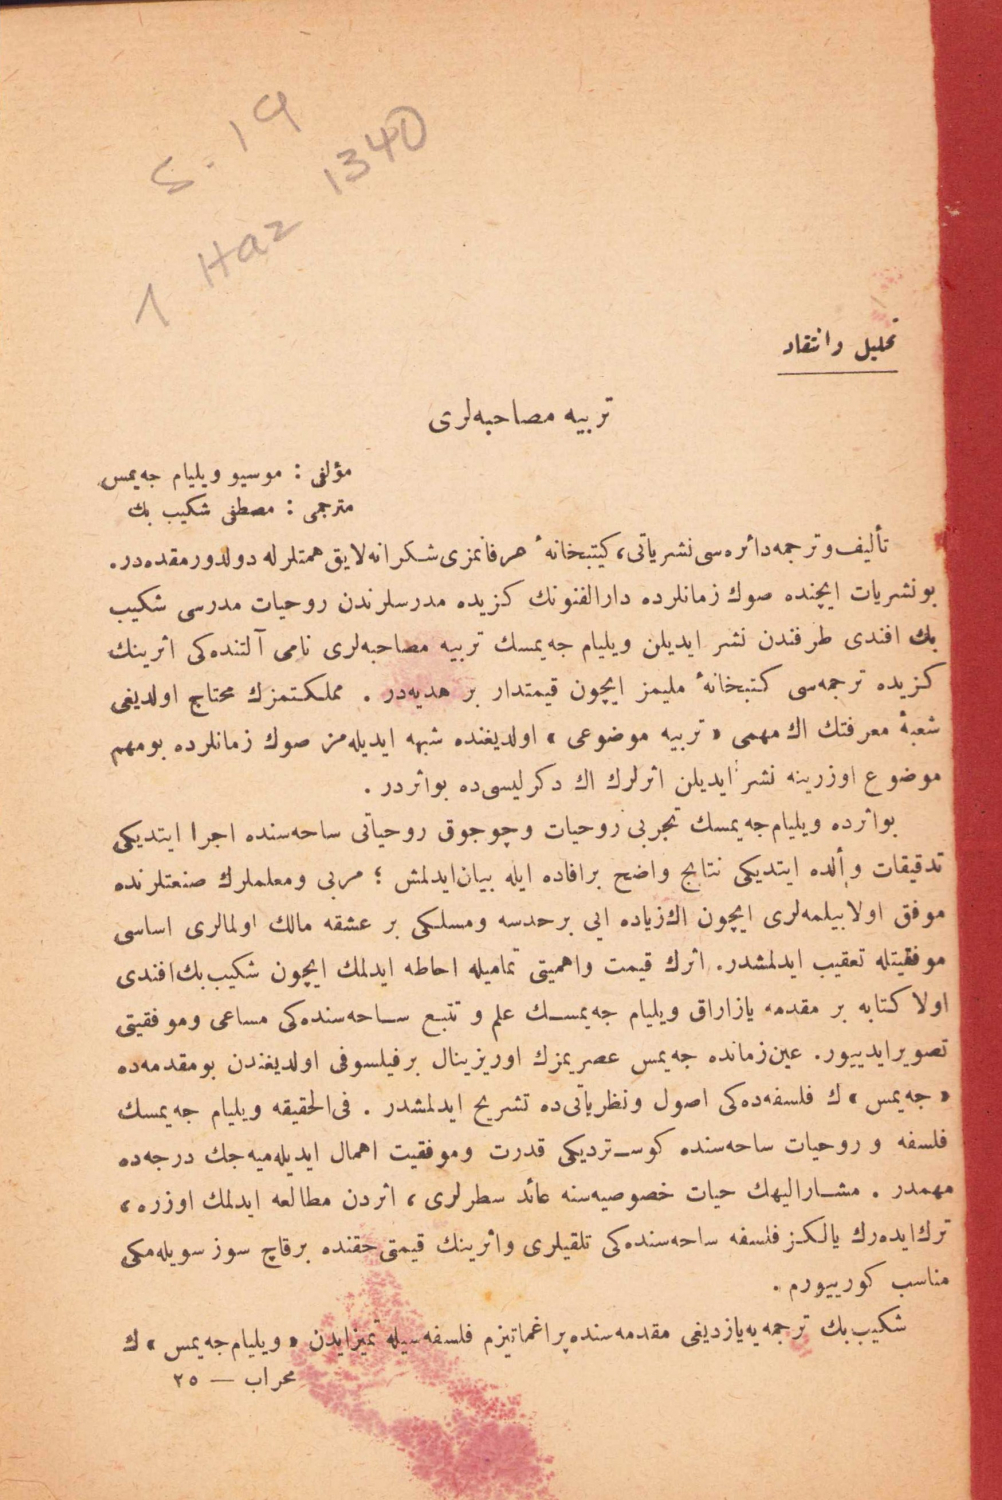 S. 19
1 Haz 1340
تحليل وانتقاد
تربيه مصاحبه‌لری
مؤلفی : موسيو ويليام جه‌يمس
مترجمی : مصطفی شكيب بك
تأليف و ترجمه دائره‌سی نشرياتی، كيتبخانهٔ عرفانمزی شكرانه لايق همتلرله دولدورمقده‌در.
بو نشريات ايچنده صوك زمانلرده دارالفنونك كزيده مدرسلرندن روحيات مدرسی شكيب
بك افندی طرفندن نشر ايديلن ويليام جه‌يمسك تربيه مصاحبه‌لری نامی آلتنده‌كی اثرينك
كزيده ترجمه‌سی كتبخانهٔ مليمز ايچون قيمتدار بر هديه‌در . مملكتمزك محتاج اولديغی
شعبهٔ معرفتك اك مهمی « تربيه موضوعی » اولديغنده شبهه ايديله‌من صوك زمانلرده بو مهم
موضوع اوزرينه نشر ايديلن اثرلرك اك دكرليسی ده بو اثردر .
بو اثرده ويليام جه‌يمسك تجربی روحيات و چوجوق روحياتی ساحه‌سنده اجرا ايتديكی
تدقيقات و ألده ايتديكی نتايج واضح بر افاده ايله بيان ايدلمش ؛ مربی ومعلملرك صنعتلرنده
موفق اولابيلمه‌لری ايچون اك زياده ايی بر حدسه ومسلكی بر عشقه مالك اولمالری اساسی
موفقيتله تعقيب ايدلمشدر. اثرك قيمت واهميتی تماميله احاطه ايدلمك ايچون شكيب بك افندی
اولا كتابه بر مقدمه يازاراق ويليام جه‌يمسك علم و تتبع ساحه‌سنده‌كی مساعی وموفقيتی
تصوير ايدييور. عين زمانده جه‌يمس عصريمزك اوريزينال بر فيلسوفی اولديغندن بو مقدمه‌ده
« جه‌يمس » ك فلسفه‌ده‌كی اصول ونظرياتی ده تشريح ايدلمشدر . فی الحقيقه ويليام جه‌يمسك
فلسفه و روحيات ساحه‌سنده كوستر‌ديكی قدرت وموفقيت اهمال ايديله‌ميه‌جك درجه‌ده
مهمدر . مشاراليهك حيات خصوصيه‌سنه عائد سطرلری ، اثردن مطالعه ايدلمك اوزره ،
ترك ايده‌رك يالكز فلسفه ساحه‌سنده‌كی تلقيلری واثرينك قيمتی حقنده برقاچ سوز سويله‌مكی
مناسب كورييورم .
شكيب بك ترجمه‌يه يازديغی مقدمه‌سنده پراغماتيزم فلسفه‌سيله تميز ايدن « ويليام جه‌يمس » ك
محراب — ٢٥